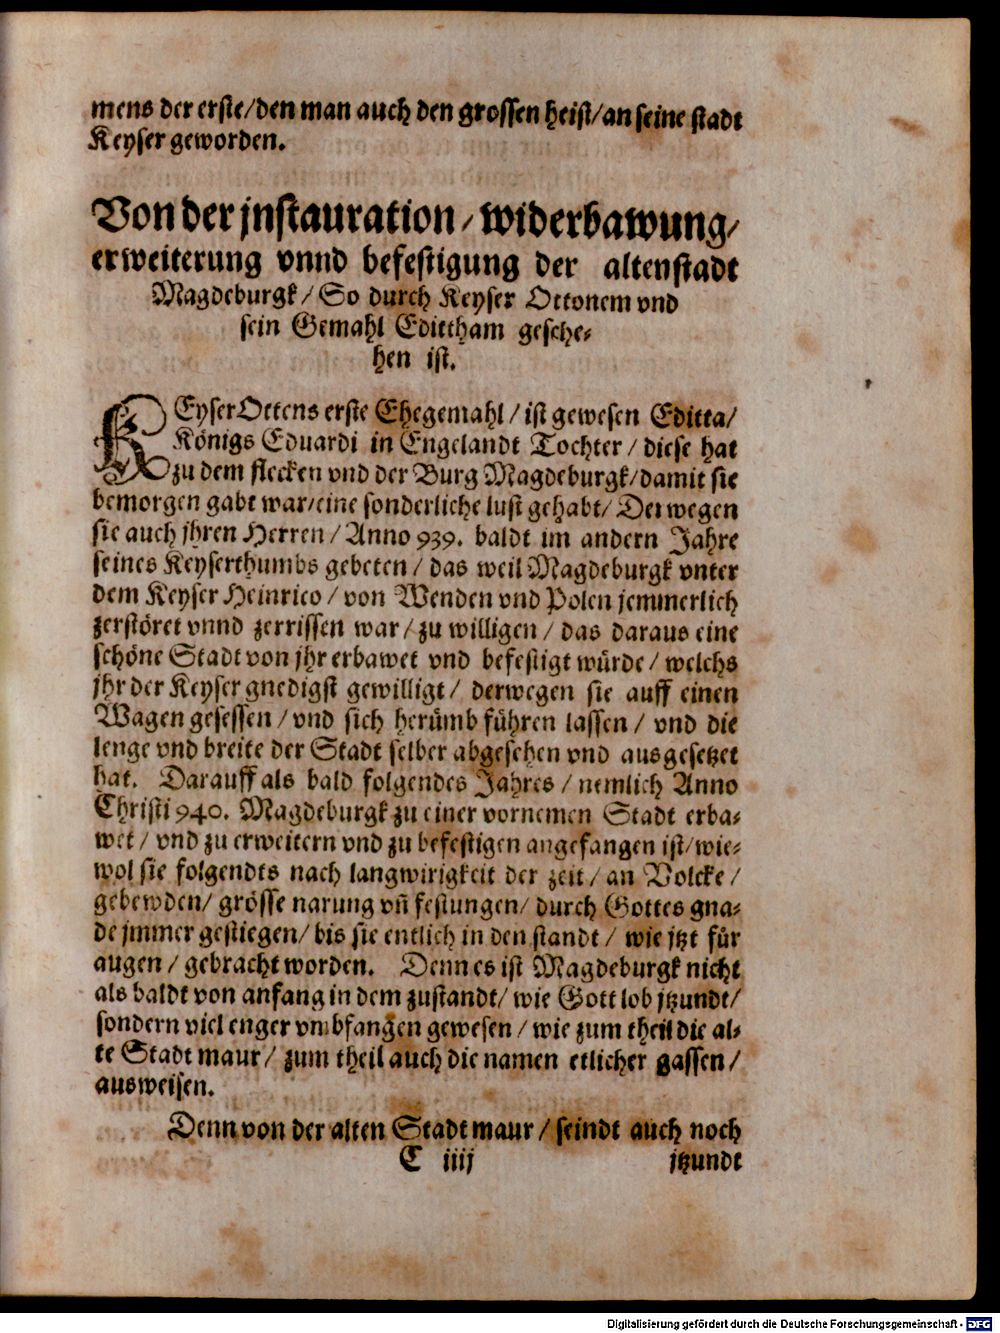 mens der erste/den man auch den grossen heist/an seine stadt
Keyser geworden.
Von der jnstauration/widerbawung/
erweiterung vnnd befestigung der altenstadt
Magdeburgk/So durch Keyser Ottonem vnd
sein Gemahl Edittham gesche-
hen ist.
KEyser Ottens erste Ehegemahl/ist gewesen Editta/
Königs Eduardi in Engelandt Tochter/diese hat
zu dem flecken vnd der Burg Magdeburgk/damit sie
bemorgengabt war/eine sonderliche lust gehabt/Derwegen
sie auch jhren Herren/Anno 939. baldt im andern Jahre
seines Keyserthumbs gebeten/das weil Magdeburgk vnter
dem Keyser Heinrico/von Wenden vnd Polen jemmerlich
zerstöret vnnd zerrissen war/zu willigen/das daraus eine
schöne Stadt von jhr erbawet vnd befestigt würde/welchs
jhr der Keyser gnedigst gewilligt/derwegen sie auff einen
Wagen gesessen/vnd sich herümb führen lassen/vnd die
lenge vnd breite der Stadt selber abgesehen vnd ausgesetzet
hat. Darauff als bald folgendes Jahres/nemlich Anno
Christi 940. Magdeburgk zu einer vornemen Stadt erba-
wet/vnd zu erweitern vnd zu befestigen angefangen ist/wie-
wol sie folgendts nach langwirigkeit der zeit/an Volcke/
gebewden/grösse narung vñ festungen/durch Gottes gna-
de jmmer gestiegen/bis sie entlich in den standt/wie jtzt für
augen/gebracht worden. Denn es ist Magdeburgk nicht
als baldt von anfang in dem zustandt/wie Gott lob jtzundt/
sondern viel enger vmbfangen gewesen/wie zum theil die al-
te Stadt maur/zum theil auch die namen etlicher gassen/
ausweisen.
Denn von der alten Stadt maur/seindt auch noch
C iiij jtzundt
Digitalisierung gefördert durch die Deutsche Forschungsgemeinschaft - DFG